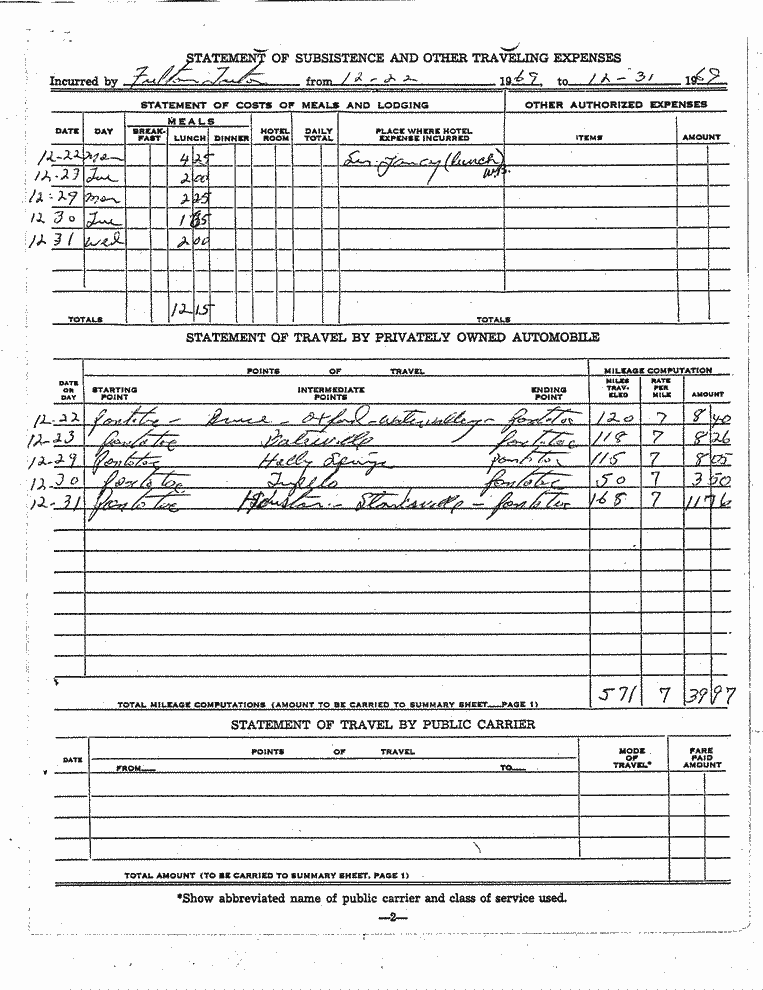 STATEMENT OF SUBSISTENCE AND OTHER TRAVELING EXPENSES
Incurred by Fulton Tutor from 12-22 1969, to 12-31 1969
STATEMENT OF COSTS OF MEALS AND LODGING OTHER AUTHORIZED EXPENSES
DATE DAY MEALS BREAK-FAST LUNCH DINNER HOTEL ROOM DAILY TOTAL PLACE WHERE HOTEL EXPENSE INCURRED ITEMS AMOUNT
12-22 Mon 4 25 Sen. Yancy (lunch)
12-23 Tue 2 00
12-29 Mon 2 25
12 30 Tue 1 65
12 31 Wed 2 00
TOTALS 12 15 TOTALS
STATEMENT OF TRAVEL BY PRIVATELY OWNED AUTOMOBILE
DATE OR DAY POINTS OF TRAVEL MILEAGE COMPUTATION
STARTING POINT INTERMEDIATE POINTS ENDING POINT MILES TRAV-ELED RATE PER MILE AMOUNT
12-22 Pontotoc - Bruce - Oxford - Water Valley - Pontotoc 120 7 8 40
12-23 Pontotoc Batesville Pontotoc 118 7 8 26
12-29 Pontotoc Holly Springs Pontotoc 115 7 8 05
12-30 Pontotoc Tupelo Pontotoc 50 7 3 50
12-31 Pontotoc Houston - Starkville - Pontotoc 168 7 11 76
TOTAL MILEAGE COMPUTATIONS (AMOUNT TO BE CARRIED TO SUMMARY SHEET PAGE 1) 571 7 39 97
STATEMENT OF TRAVEL BY PUBLIC CARRIER
DATE POINTS OF TRAVEL MODE OF TRAVEL* FARE PAID AMOUNT
FROM TO
TOTAL AMOUNT (TO BE CARRIED TO SUMMARY SHEET, PAGE 1)
*Show abbreviated name of public carrier and class of service used.
—2—